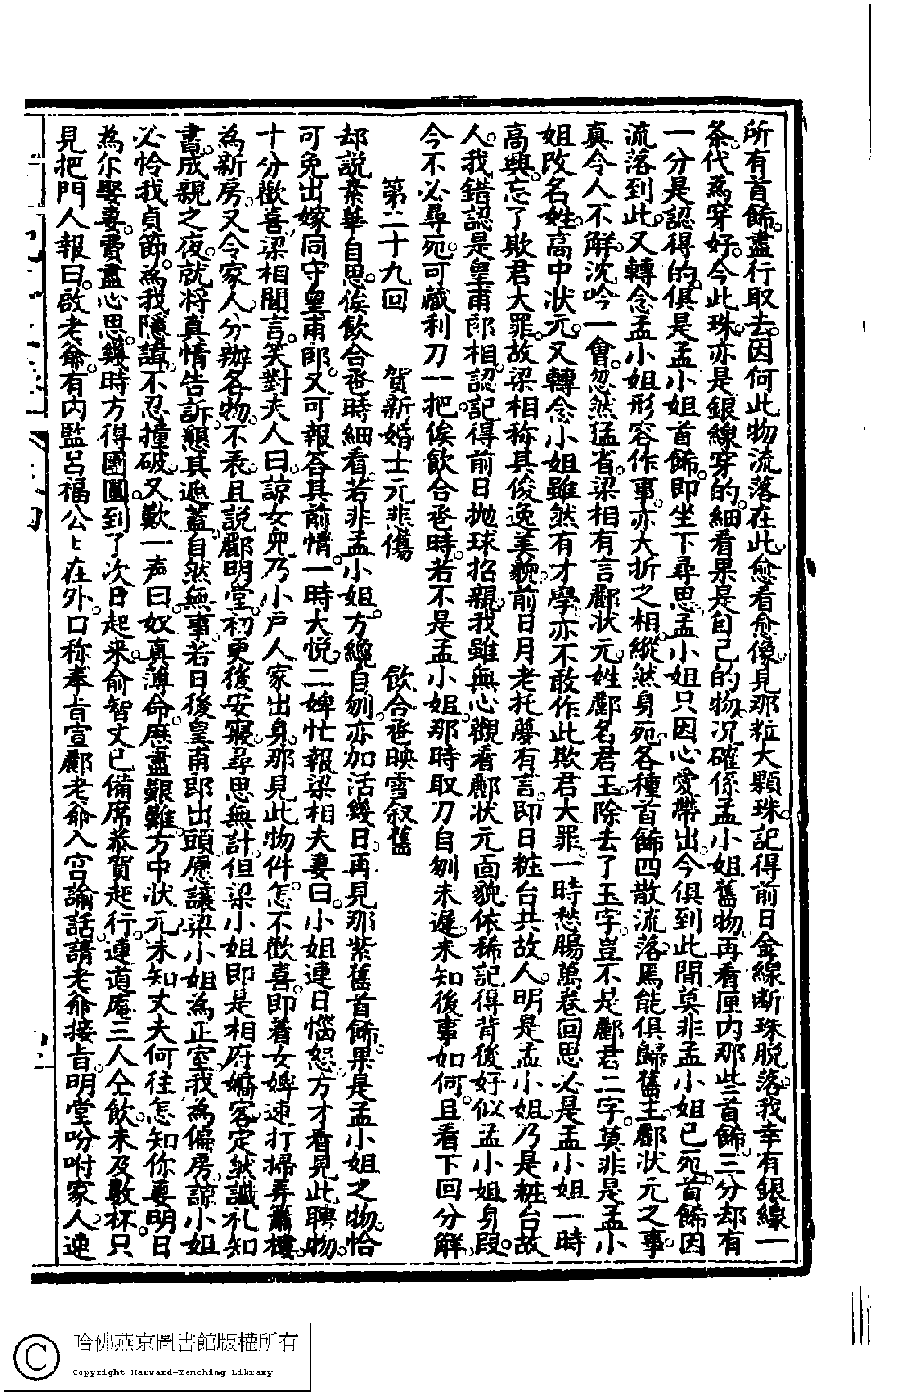 所有首餙。盡行取去。因何此物流落在此。愈看愈像。見那粒大顆珠。記得前日金線断。珠脫落。我幸有銀線一
条。代為穿好。今此珠亦是銀線穿的。細看果是自己的物。况確係孟小姐舊物。再看匣内那些首餙。三分却有
一分是認得的。俱是孟小姐首餙。即坐下尋思。孟小姐只因心愛帶出。今俱到此間。莫非孟小姐已死。首餙因
流落到此。又轉念孟小姐形容作事。亦大折之相。縱然身死。各種首餙四散流落。焉能俱歸舊主。酈状元之事
真令人不解。沈吟一會。忽然猛省。梁相有言酈状元姓酈名君玉。除去了玉字。豈不是酈君二字。莫非是孟小
姐改名姓。高中状元。又轉念小姐雖然有才學。亦不敢作此欺君大罪。一時愁腸萬卷。回思必是孟小姐一時
高興。忘了欺君大罪。故梁相称其俊逸美貌。前日月老托夢有言。即日粧台共故人。明是孟小姐乃是粧台故
人。我錯認是皇甫郎相認。記得前日抛球招親。我雖無心觀看。酈状元面貌依稀。記得背後好似孟小姐身段。
今不必尋死。可藏利刀一把。俟飲合卺時。若不是孟小姐。那時取刀自刎未遲。未知後事如何。且看下回分解
第二十九回　賀新婚士元悲傷　飲合卺映雪叙舊
却說素華自思。俟飲合卺時細看。若非孟小姐。方纔自刎。亦加活幾日。再見那紫舊首餙。果是孟小姐之物。恰
可免出嫁同守皇甫郎。又可報答其前情。一時大悦。二婢忙報梁相夫妻曰。小姐連日惱怒。方才看見此聘物。
十分歡喜。梁相聞言。笑對夫人曰。諒女兒乃小戶人家出身。那見此物件。怎不歡喜。即着女婢速打掃弄簫樓
為新房。又令家人分辦各物。不表。且說酈明堂。初更後安寢。尋思無計。但梁小姐即是相府嬌客。定然識礼知
書。成親之夜。就将真情告訴。懇其遮蓋。自然無事。若日後皇甫郎出頭。愿讓梁小姐為正室。我為偏房。諒小姐
必恰我貞節。為我隱諱。不忍撞破。又歎一声曰。奴真薄命。庶盡艱難。方中状元。未知丈夫何往。怎知你妻明日
為尔娶妻。費盡心思。幾時方得團圓。到了次日起来。俞智丈已備席恭賀。起行。連道庵三人仝飲。未及數杯。只
見把門人報曰。啟老爺。有内監呂福公公在外。口称奉旨宣酈老爺入宫諭話。請老爺接旨。明堂吩咐家人速
哈佛燕京圖書館版權所有
Copyright Harvard-Yenching Library